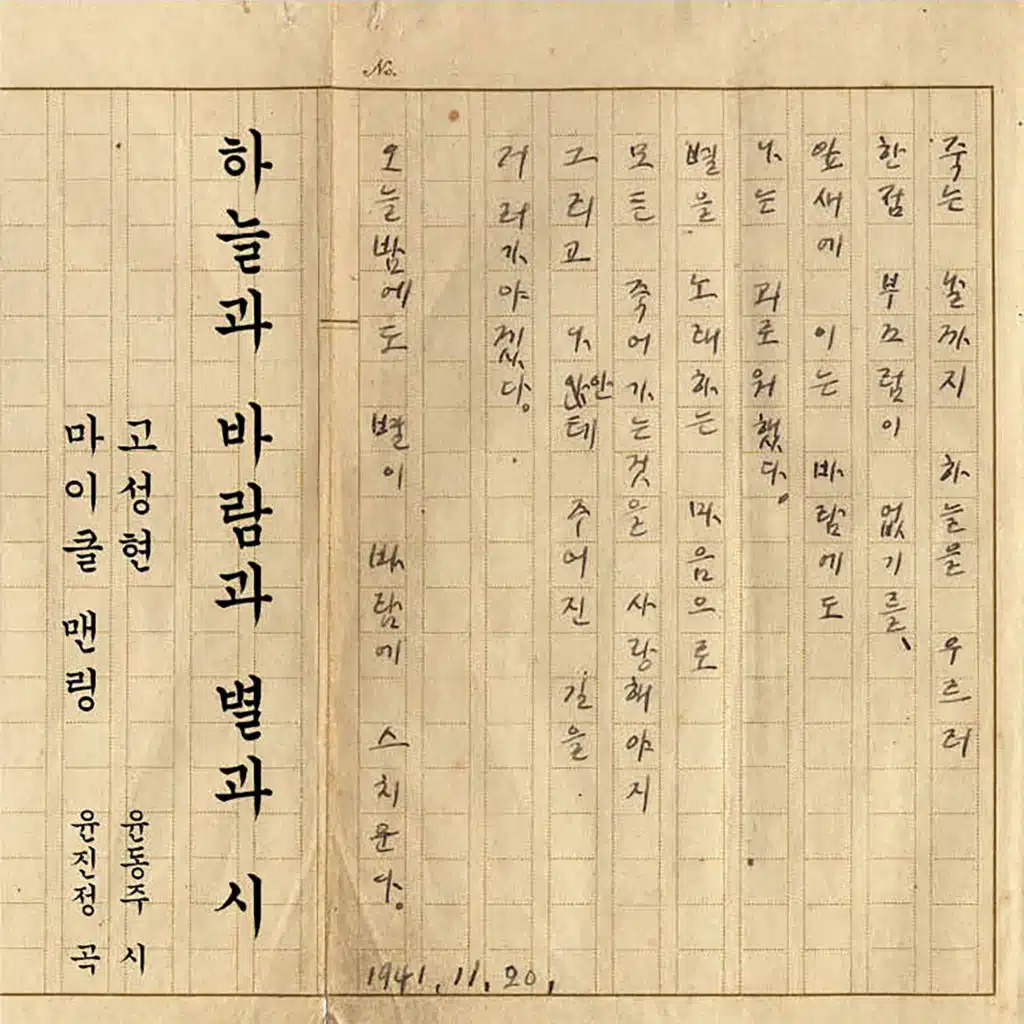 No.
죽는 날까지 하늘을 우르러
한점 부끄럼이 없기를、
잎새에 이는 바람에도
나는 괴로워했다。
별을 노래하는 마음으로
모든 죽어가는것을 사랑해야지
그리고 나안테 주어진 길을
거러가야겠다。
오늘밤에도 별이 바람에 스치운다。
1941. 11. 20.
하늘과 바람과 별과 시
고성현
마이클 맨링
윤동주 시
윤진정 곡